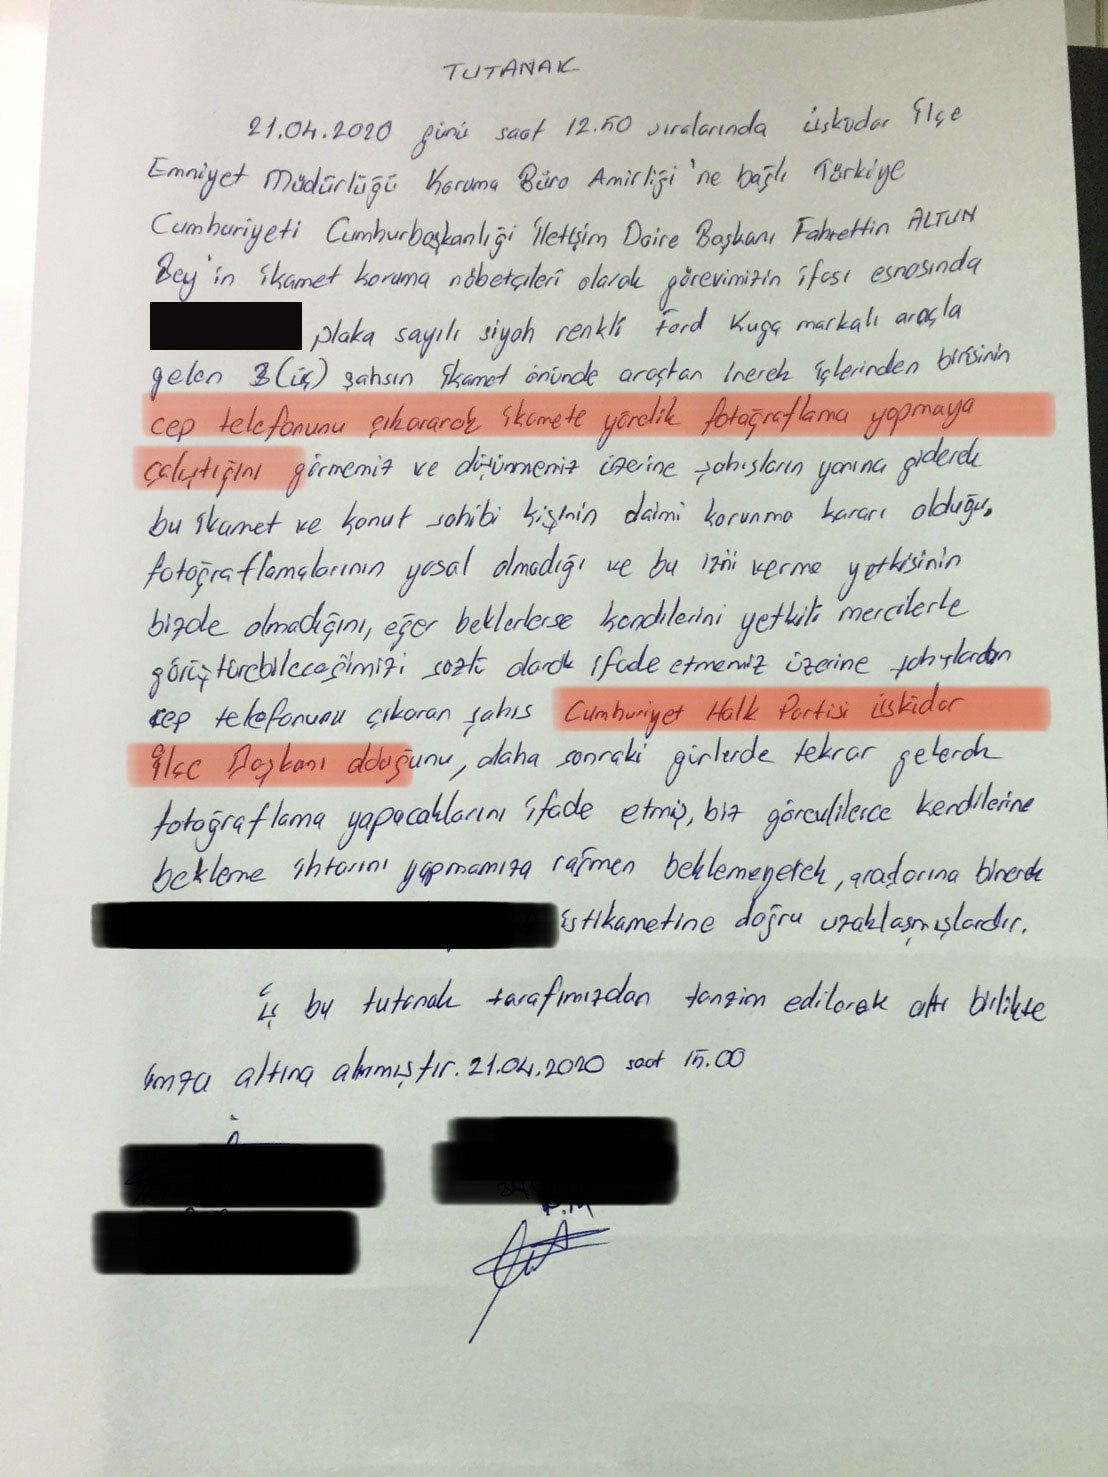 TUTANAK
21.04.2020 günü saat 12.50 sıralarında Üsküdar İlçe
Emniyet Müdürlüğü Koruma Büro Amirliği'ne bağlı Türkiye
Cumhuriyeti Cumhurbaşkanlığı İletişim Daire Başkanı Fahrettin ALTUN
Bey'in ikamet koruma nöbetçileri olarak görevimizin ifası esnasında
plaka sayılı siyah renkli Ford Kuga markalı araçla
gelen 3 (üç) şahsın ikamet önünde araçtan inerek içlerinden birisinin
cep telefonunu çıkararak ikamete yönelik fotoğraflama yapmaya
çalıştığını görmemiz ve düşünmemiz üzerine şahısların yanına giderek
bu ikamet ve konut sahibi kişinin daimi korunma kararı olduğu,
fotoğraflamalarının yasal olmadığı ve bu izni verme yetkisinin
bizde olmadığını, eğer beklerlerse kendilerini yetkili mercilerle
görüştürebileceğimizi sözlü olarak ifade etmemiz üzerine şahıslardan
cep telefonunu çıkaran şahıs Cumhuriyet Halk Partisi Üsküdar
İlçe Başkanı olduğunu, daha sonraki günlerde tekrar gelerek
fotoğraflama yapacaklarını ifade etmiş, biz görevlilerce kendilerine
bekleme ihtarını yapmamıza rağmen beklemeyerek, araçlarına binerek
istikametine doğru uzaklaşmışlardır.
İş bu tutanak tarafımızdan tanzim edilerek altı birlikte
imza altına alınmıştır. 21.04.2020 saat 15.00
P.M